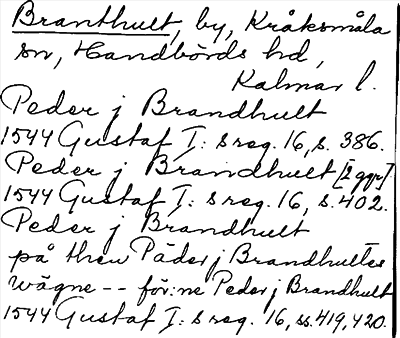 Branthult, by, Kråksmåla
sn, Handbörds hd,
Kalmar l.
Peder j Brandhult
1544 Gustaf I: s reg. 16, s. 386.
Peder j Brandhult [2 ggr]
1544 Gustaf I: s reg. 16, s. 402.
Peder j Brandhult
på then Päder j Brandhultes
wägne -- för:ne Peder j Brandhult
1544 Gustaf I: s reg. 16, ss. 419, 420.